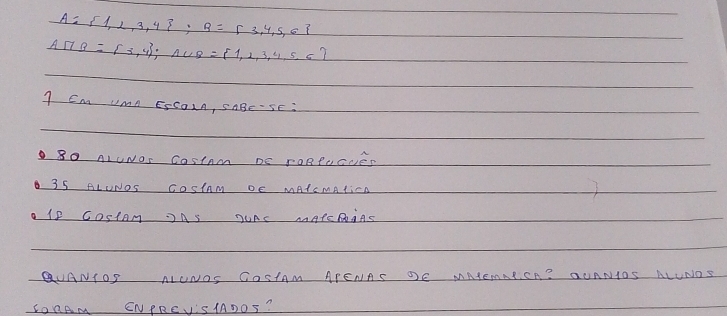 A = {1, 2, 3, 4} ; B = {3,4,5,6}
A∩B = {3,4}; A∪B = {1,2,3,4,5,6}
1 EM UMA ESCOLA, SABE-SE:
• 80 ALUNOS GOSTAM DE PORTUGUÊS
• 35 ALUNOS GOSTAM DE MATEMATICA
• 18 GOSTAM DAS DUAS MATERIAS
QUANTOS ALUNOS GOSTAM APENAS DE MATEMATICA? QUANTOS ALUNOS
FORAM ENTREVISTADOS?